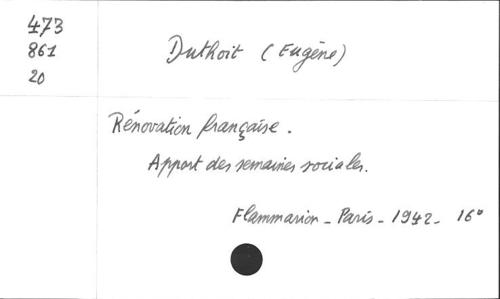 473
861
20
Duthoit (Eugène)
Rénovation française.
Apport des semaines sociales.
Flammarion - Paris - 1942 - 16°